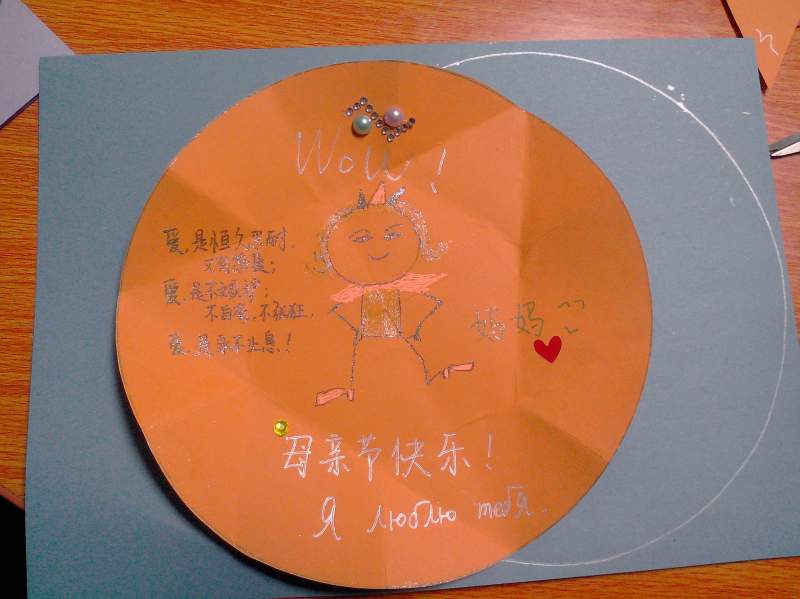 Wow!
爱,是恒久忍耐,
又有恩慈;
爱,是不嫉妒;
不自夸,不张狂,
爱,是永不止息!
妈妈
母亲节快乐!
Я люблю тебя.